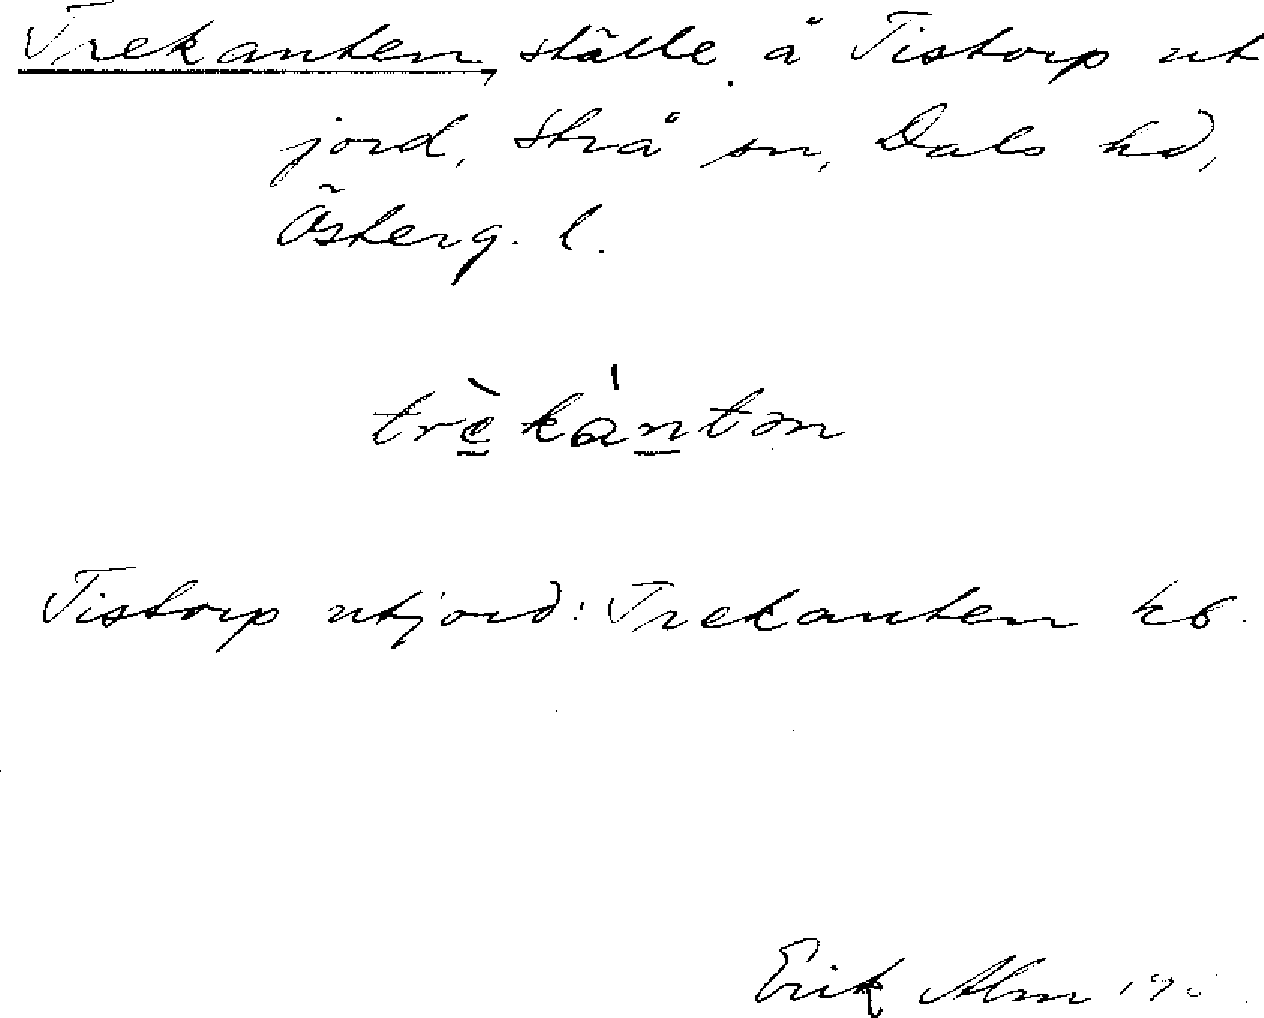 Trekanten, ställe å Tistorp ut
jord, Strå sn, Dals hd,
Österg. l.
trèkántən
Tistorp utjord: Trekanten kb.
Erik Alm